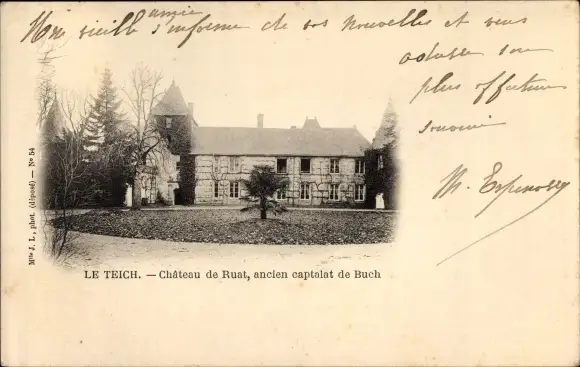 Mon vieille amie s'informe de vos Nouvelles et vous
adresse son
plus affectueux
souvenir
M. Espinolly
Mlle J. L., phot. (déposé) — No 54
LE TEICH. — Château de Ruat, ancien captalat de Buch